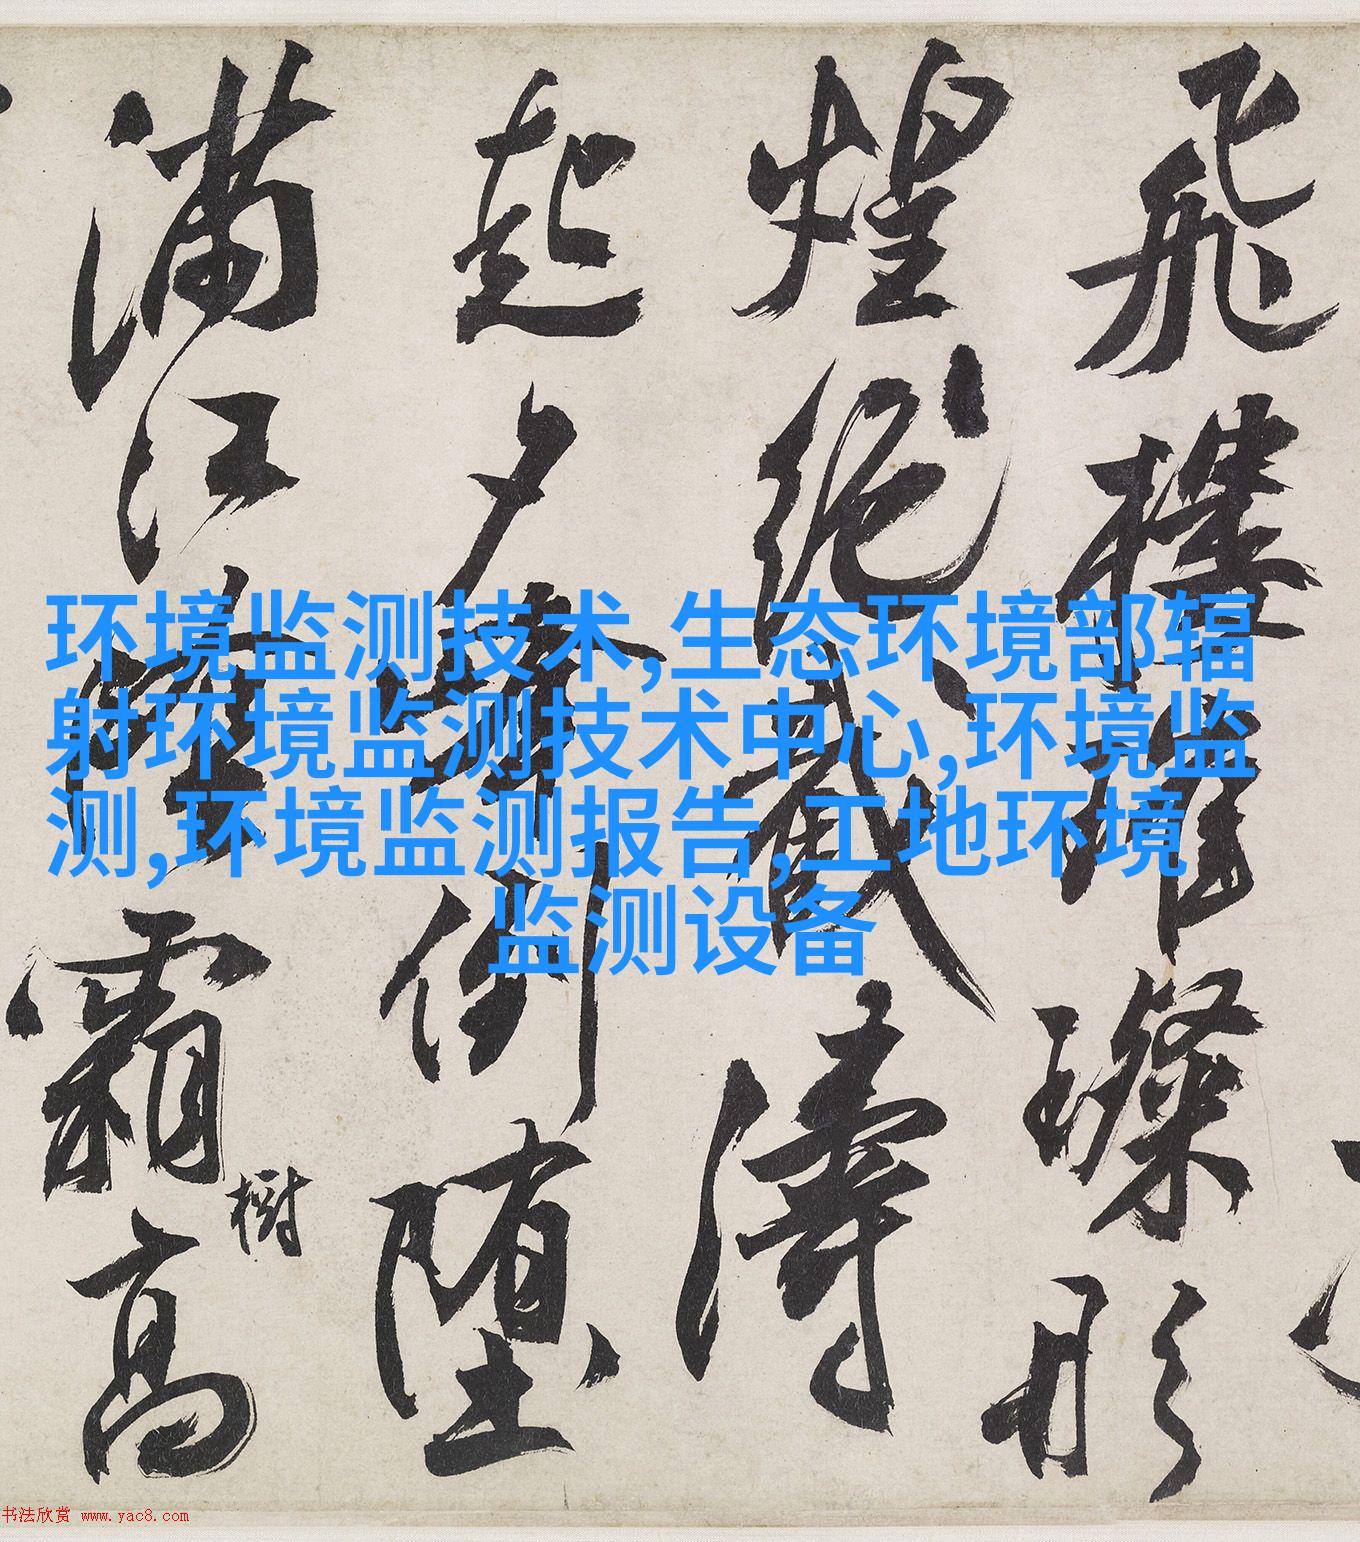 环境监测技术,生态环境部辐
射环境监测技术中心,环境监
测,环境监测报告,工地环境
监测设备
飛樓璀璨形
煌絕截濤
起夕倒墮
滿江霜高
樹
书法欣赏 www.yac8.com